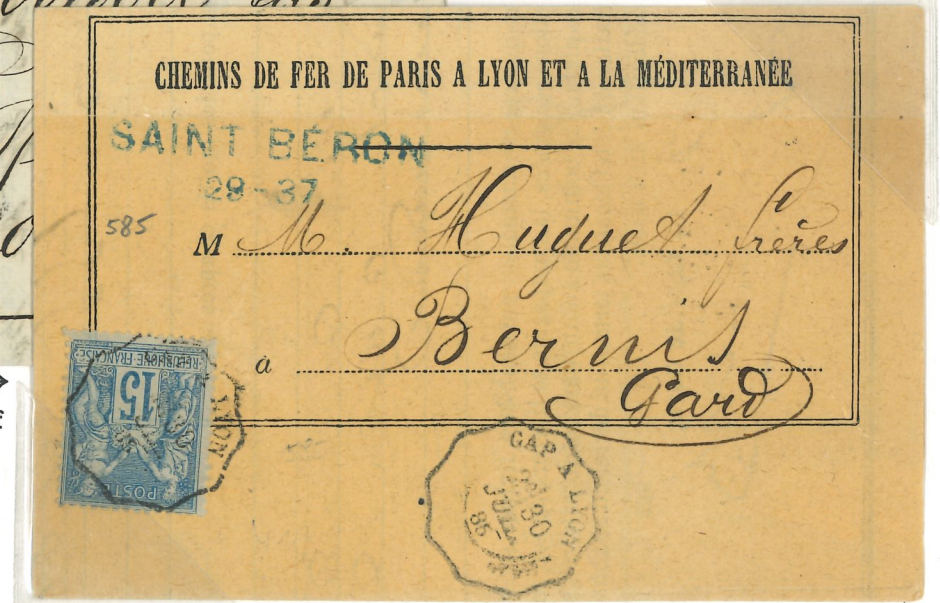 CHEMINS DE FER DE PARIS A LYON ET A LA MÉDITERRANÉE
SAINT BÉRON
29-37
585
M M. Huguet frères
à Bernis
Gard
REPUBLIQUE FRANÇAISE
15
POSTE
LYON
GAP A LYON
30
JUIL
86